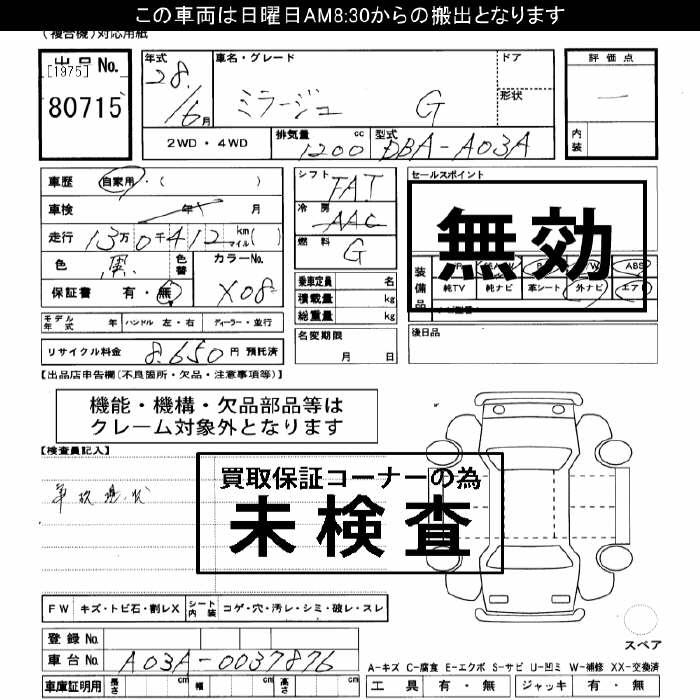 この車両は日曜日AM8:30からの搬出となります
(複合機)対応用紙
出品No.
[1975]
80715
年式
28.
/6月
車名・グレード
ミラージュ G
ドア
形状
評価点
内装
2WD・4WD
排気量 cc
1200
型式
DBA-A03A
車歴 自家用・( )
車検 年 月
走行 13万0千412 km マイル( )
色 黒
色替
カラーNo.
X08
保証書 有・無
シフト FAT
冷房 AAC
燃料 G
乗車定員 名
積載量 kg
総重量 kg
名変期限
月 日
セールスポイント
無効
装備品
ABS
純TV 純ナビ 革シート 外ナビ エアB
後日品
モデル年式 年 ハンドル 左・右 ディーラー・並行
リサイクル料金 8,650円 預託済
【出品店申告欄(不良箇所・欠品・注意事項等)】
機能・機構・欠品部品等は
クレーム対象外となります
【検査員記入】
買取保証コーナーの為
未検査
FW キズ・トビ石・割レX
シート内装 コゲ・穴・汚レ・シミ・破レ・スレ
登録No.
車台No. A03A-0037876
車庫証明用 長さ cm 幅 cm 高さ cm
スペア
A-キズ C-腐食 E-エクボ S-サビ U-凹ミ W-補修 XX-交換済
工具 有・無 ジャッキ 有・無